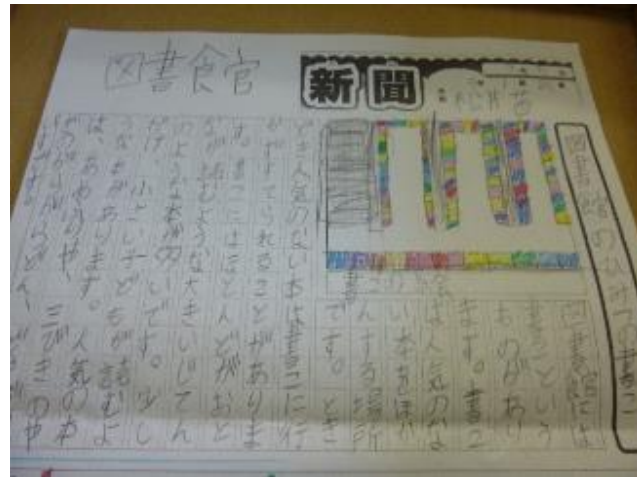 図書館
新聞
図書館のひみつの書こ
図書館には
書こという
ものがあり
ます。書こ
は人気のな
い本をほか
んする場所
です。とき
どき人気のない本は書こに行
かすてられることがありま
す。書こにはほとんどがおと
なが読むような大きいじてん
のような本が多いです。少し
だけ 小さい子どもが読むよ
うな本があります。人気の本
は、 三びきのや
ぎのがらがらどん、